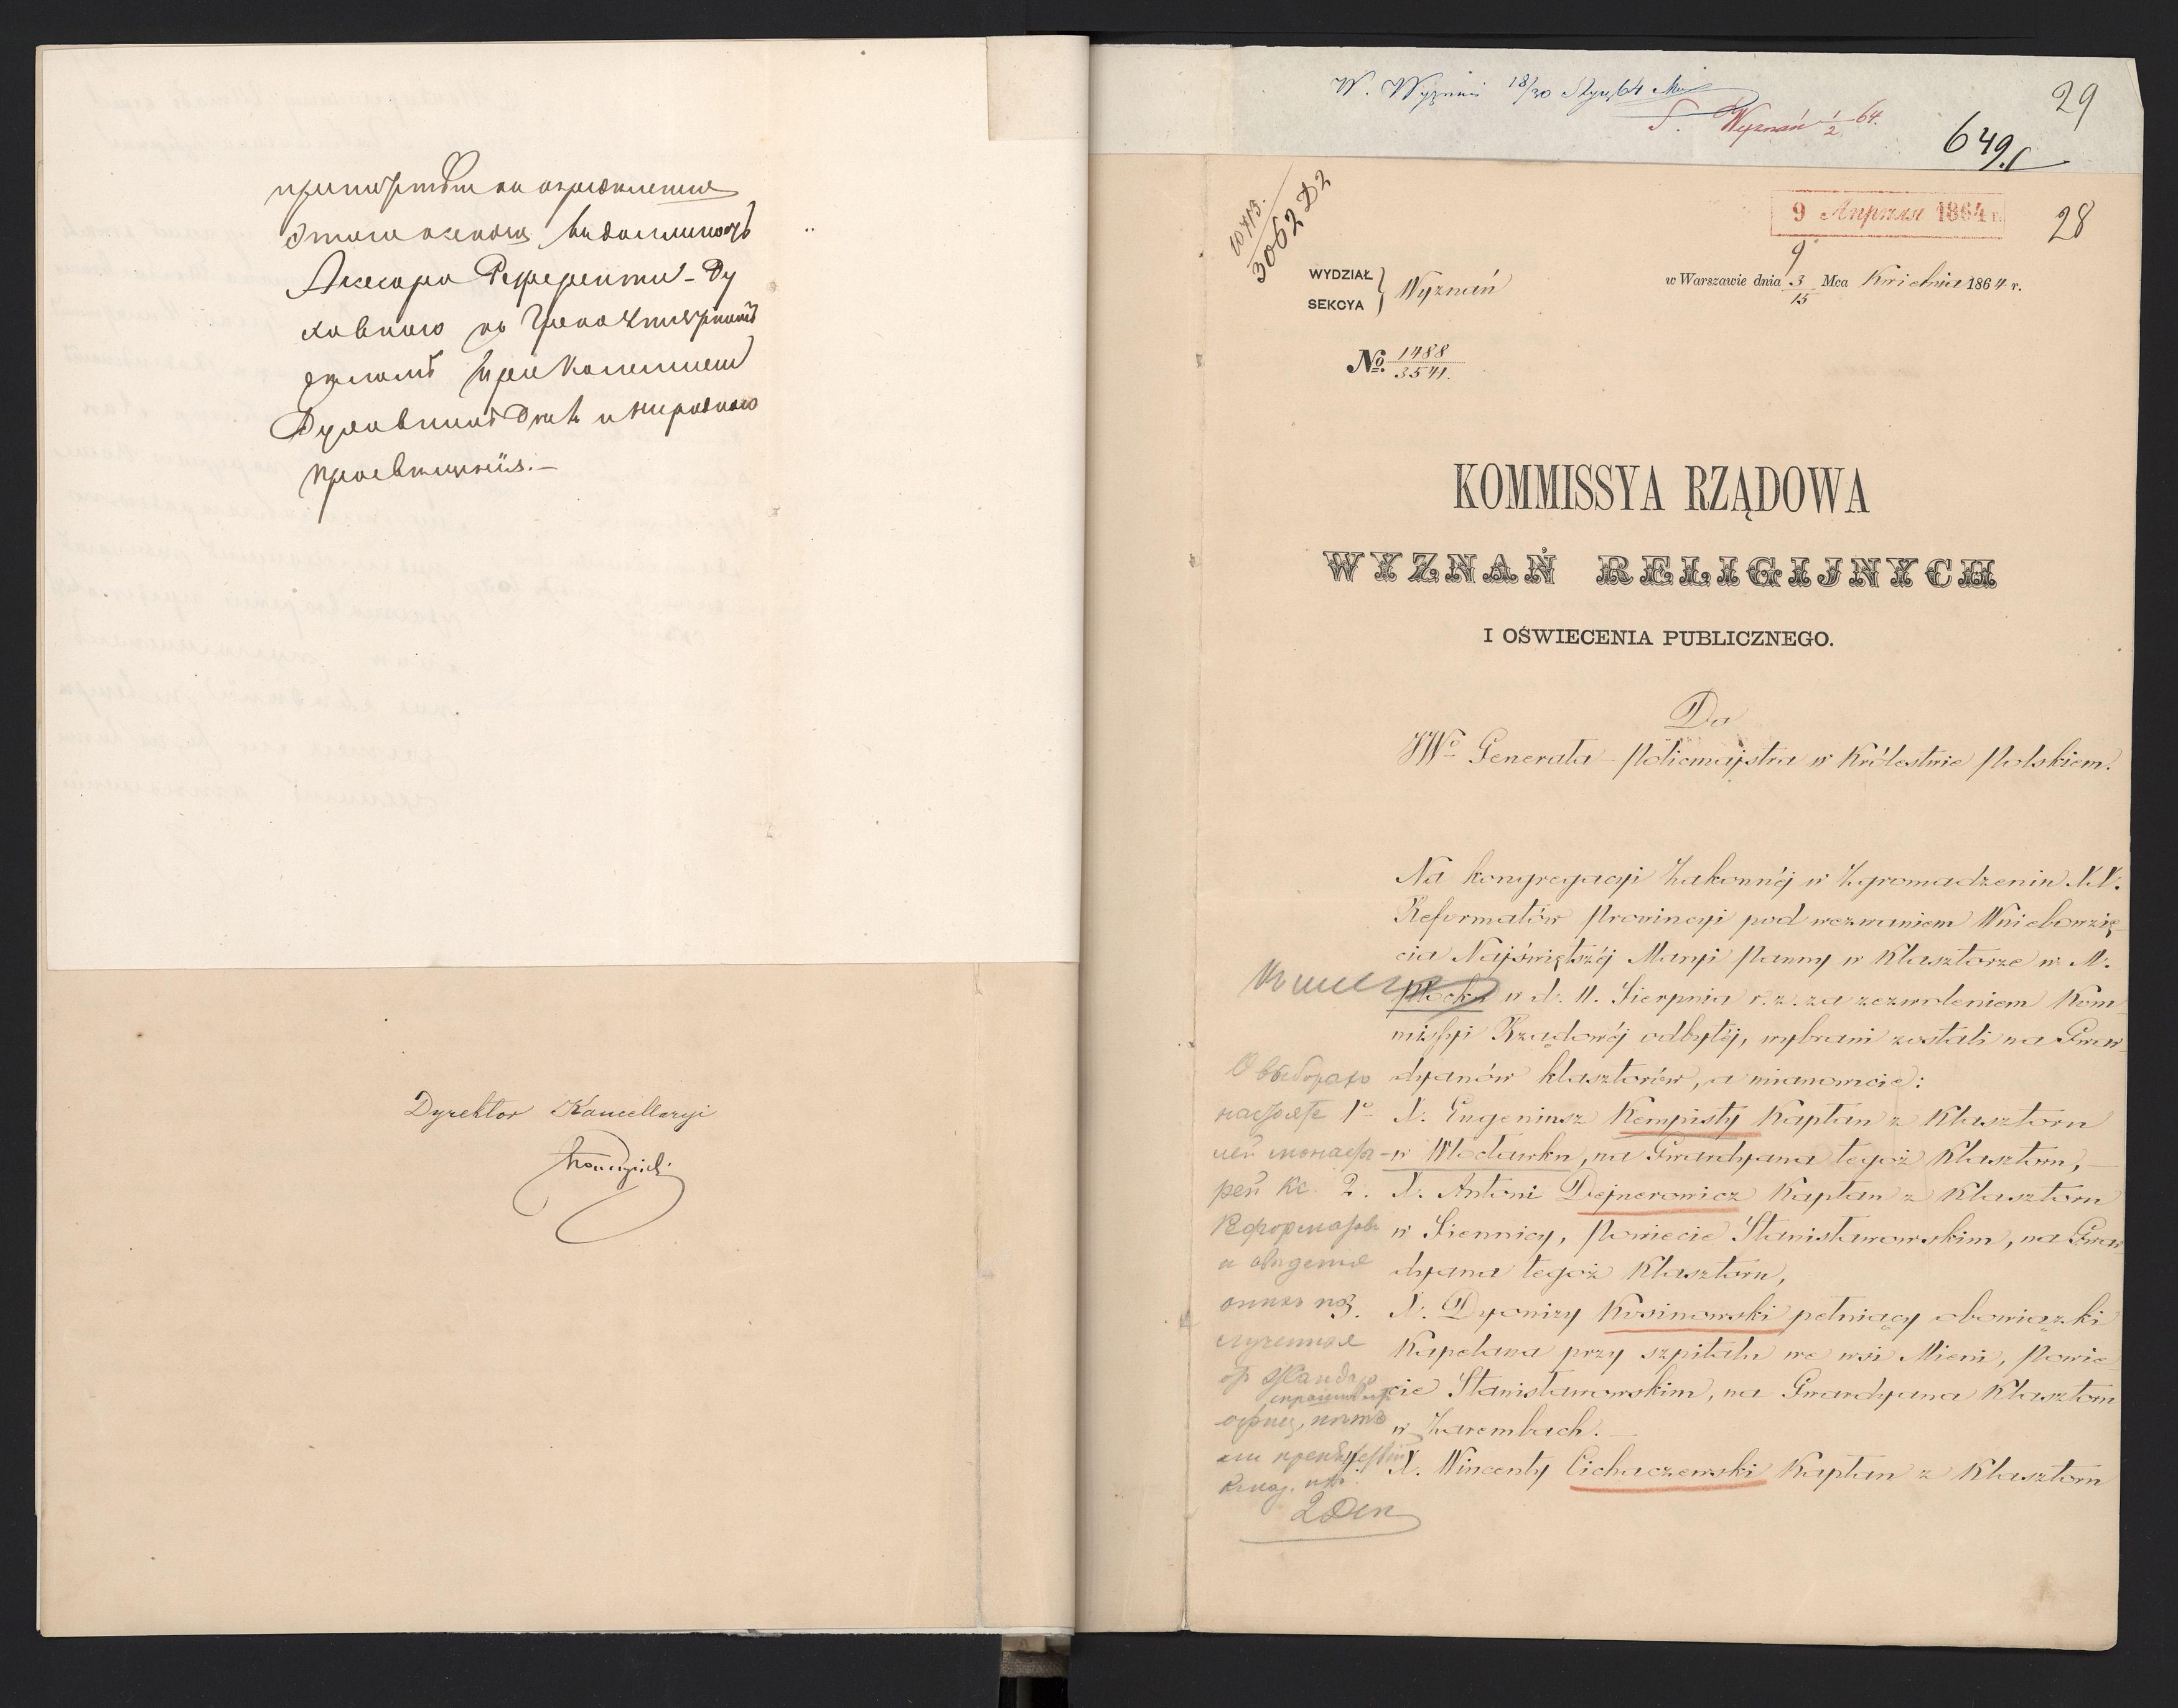 этаго
Ассесора Референта-Ду
ховнаго по Грекоуніятскимъ
дѣламъ при Коммиссіи
Духовныхъ Дѣлъ и Народнаго
просвѣщенія.—
Dyrektor Kancellaryi
W. Wyznań 18/30 Stycz 64
S. Wyznań 1/2 64.
29
649.
10413.
3062 D2
9 Апрѣля 1864 г.
28
WYDZIAŁ
SEKCYA
Wyznań
9
w Warszawie dnia 3/15 Mca Kwietnia 1864 r.
№ 1488/3541.
KOMMISSYA RZĄDOWA
WYZNAŃ RELIGIJNYCH
I OŚWIECENIA PUBLICZNEGO.
Do
JWo Generała-Policmajstra w Królestwie Polskiem.
Na kongregacyi Zakonnéj w Zgromadzeniu XX.
Reformatów Prowincyi pod wezwaniem Wniebowzię-
cia Najświętszéj Maryi Panny w Klasztorze w M.
Płocku w d. 11. Sierpnia r. z. za zezwoleniem Kom-
missyi Rządowéj odbytéj, wybrani zostali na Gwar-
dyanów klasztorów, a mianowicie:
1o X. Eugeniusz Kempisty Kapłan z Klasztoru
w Włodawku, na Gwardyana tegoż Klasztoru,
2. X. Antoni Dejnerowicz Kapłan z Klasztoru
w Siennicy, Powiecie Stanisławowskim, na Gwar-
dyana tegoż Klasztoru,
3. X. Dyonizy Kosinowski pełniący obowiązki
Kapelana przy szpitalu we wsi Mieni, Powie-
cie Stanisławowskim, na Gwardyana Klasztoru
w Zarembach.
4. X. Wincenty Cichaczewski Kapłan z Klasztoru
О выборахъ
настояте
лей монасты
рей Кс.
Реформатовъ
2 Ден